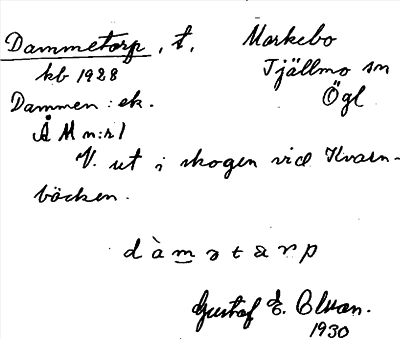 Dammetorp, t, Markebo
kb 1928 Tjällmo sn
Dammen: ek. Ögl
Å M n:r 1
V. ut i skogen vid Kvarn-
bäcken.
dàmətarp
Gustaf E. Olsson.
1930